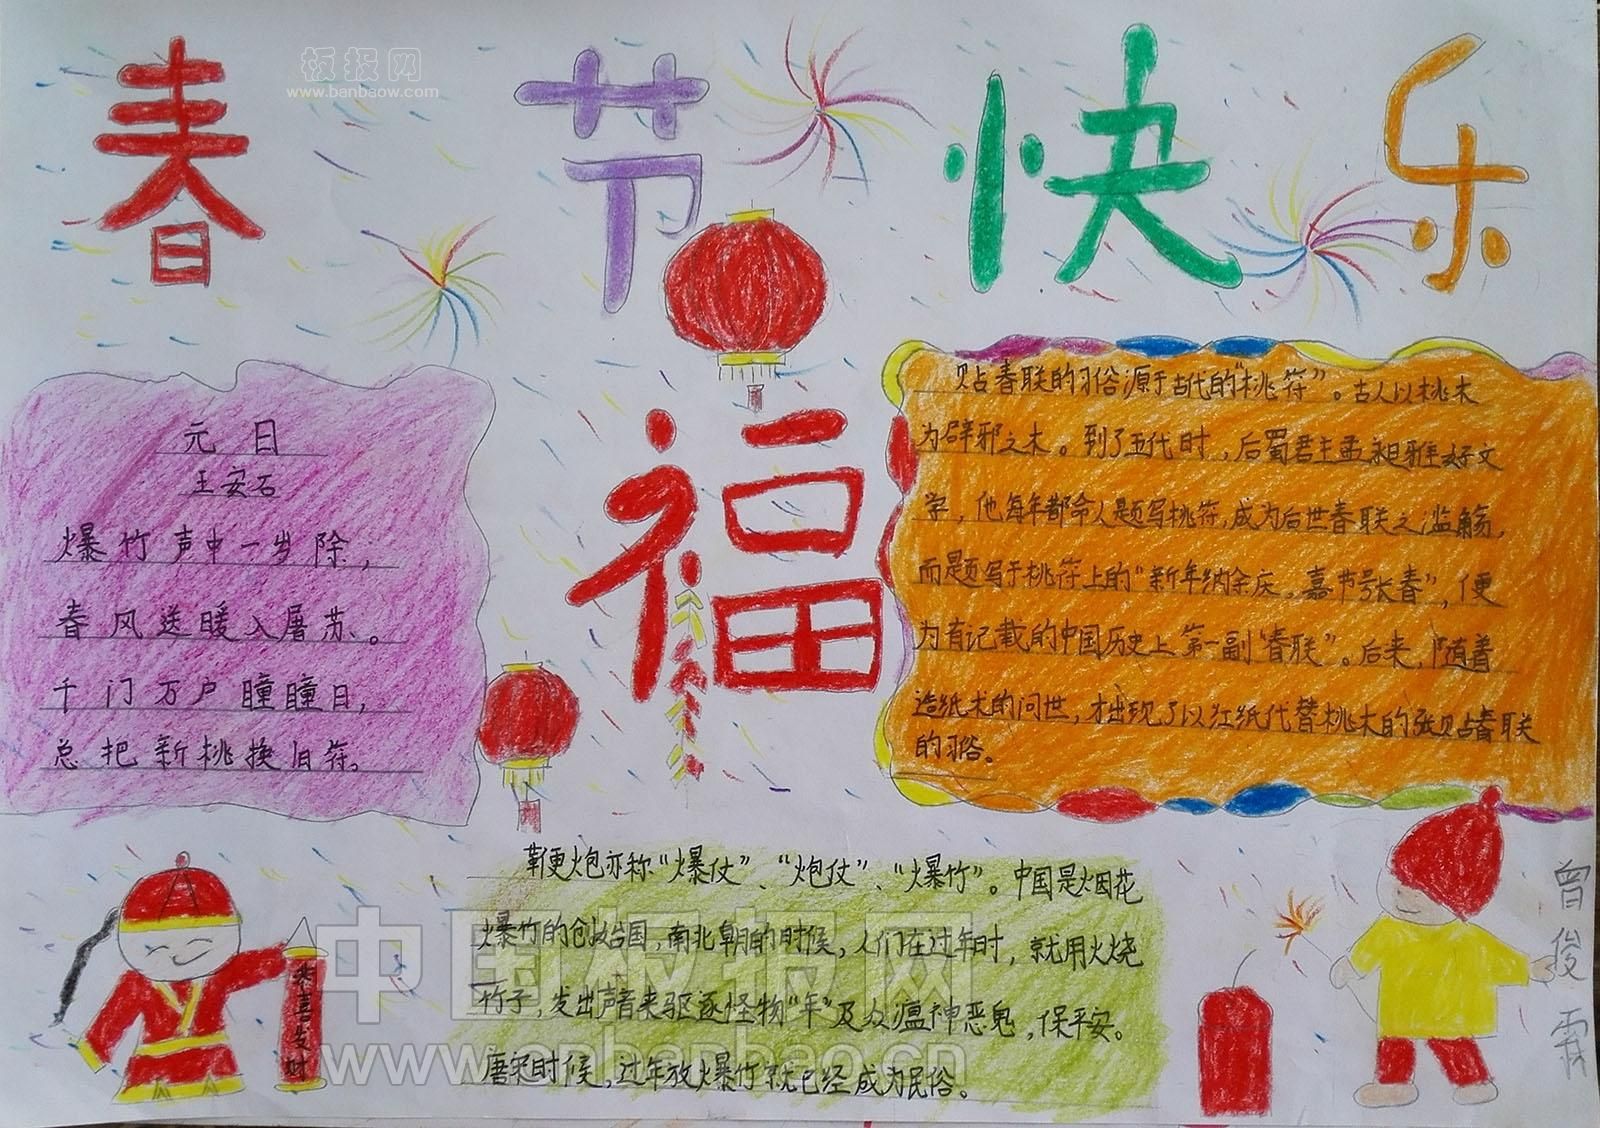 春节快乐
板报网
www.banbaow.com
福
元日
王安石
爆竹声中一岁除，
春风送暖入屠苏。
千门万户曈曈日，
总把新桃换旧符。
贴春联的习俗源于古代的“桃符”。古人以桃木
为辟邪之木。到了五代时，后蜀君主孟昶雅好文
学，他每年都命人题写桃符，成为后世春联之滥觞，
而题写于桃符上的“新年纳余庆。嘉节号长春”，便
为有记载的中国历史上第一副“春联”。后来，随着
造纸术的问世，才出现了以红纸代替桃木的张贴春联
的习俗。
鞭炮亦称“爆仗”、“炮仗”、“爆竹”。中国是烟花
爆竹的创始国，南北朝的时候，人们在过年时，就用火烧
竹子，发出声音来驱逐怪物“年”及众瘟神恶鬼，保平安。
唐宋时候，过年放爆竹就已经成为民俗。
恭喜发财
曾俊霖
中国板报网
www.cnbanbao.cn